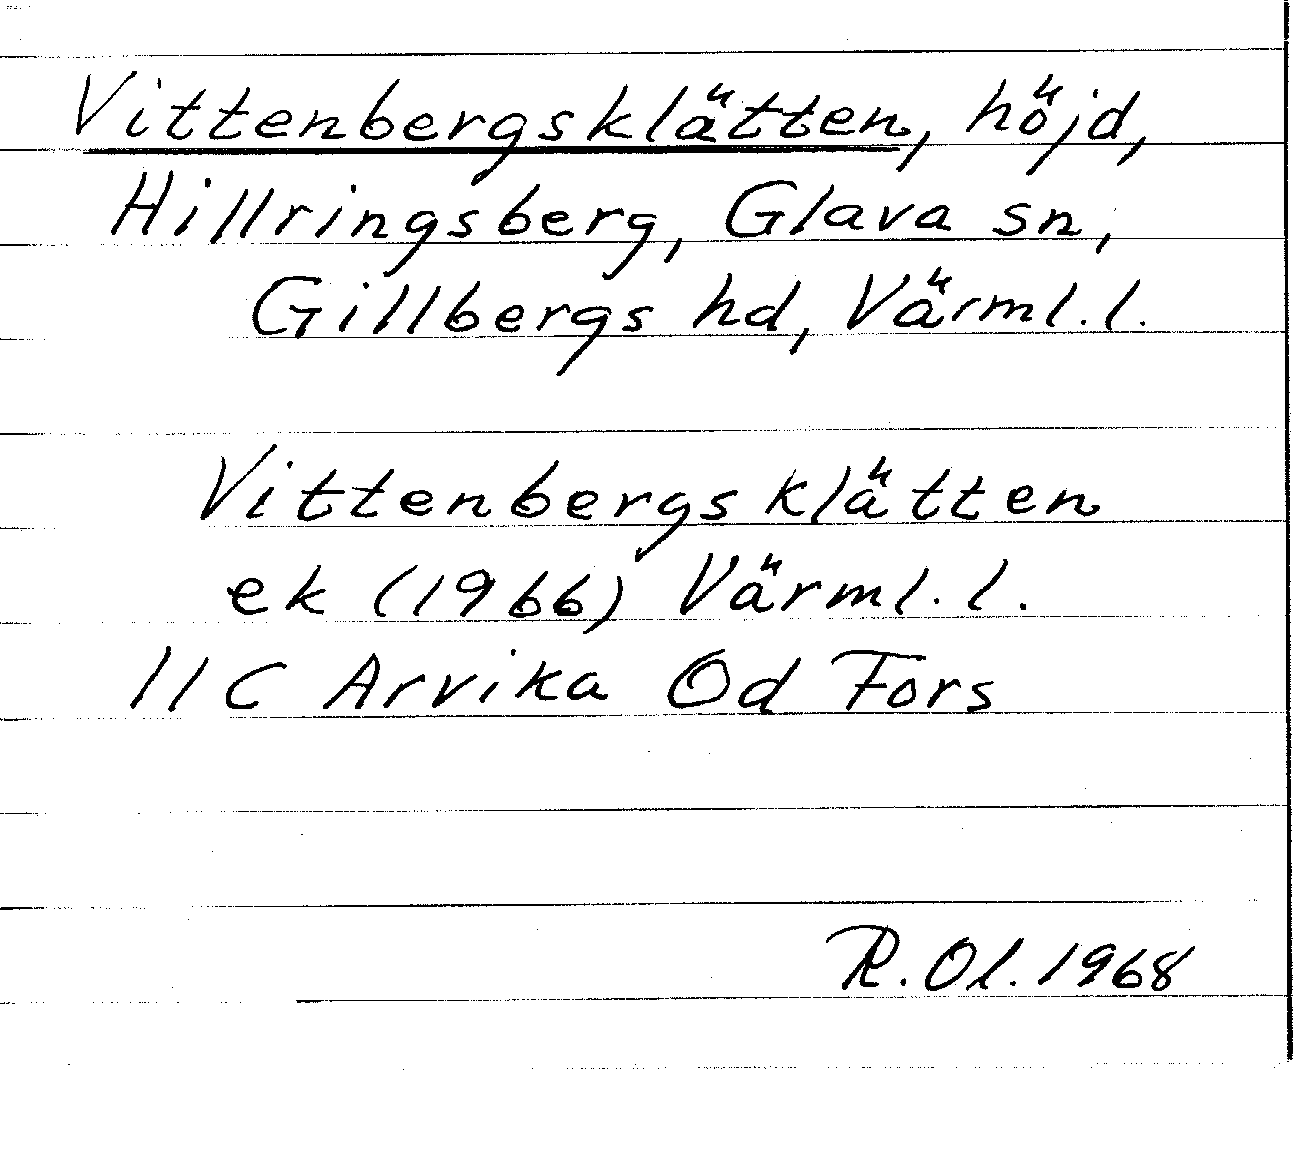 Vittenbergsklätten, höjd,
Hillringsberg, Glava sn,
Gillbergs hd, Värml. l.
Vittenbergsklätten
ek (1966) Värml. l.
11 C Arvika Od Fors
R. Ol. 1968